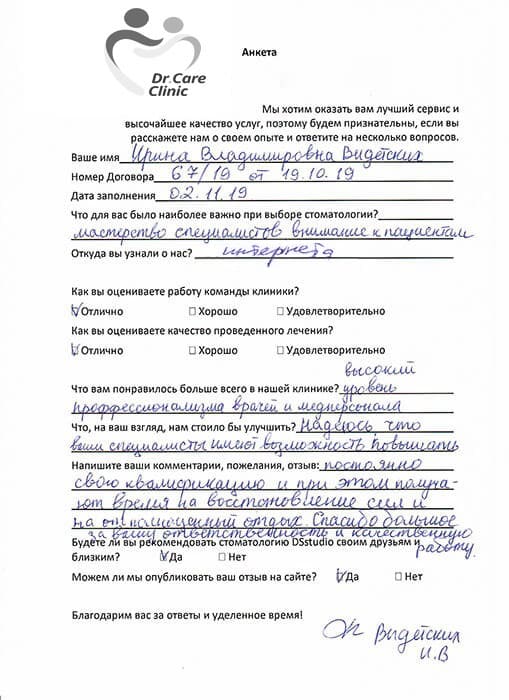 Dr.Care
Clinic
Анкета
Мы хотим оказать вам лучший сервис и
высочайшее качество услуг, поэтому будем признательны, если вы
расскажете нам о своем опыте и ответите на несколько вопросов.
Ваше имя Ирина Владимировна Видетских
Номер Договора 67/19 от 19.10.19
Дата заполнения 02.11.19
Что для вас было наиболее важно при выборе стоматологии?
мастерство специалистов внимание к пациентам
Откуда вы узнали о нас? интернета
Как вы оцениваете работу команды клиники?
Отлично Хорошо Удовлетворительно
Как вы оцениваете качество проведенного лечения?
Отлично Хорошо Удовлетворительно
высокий
Что вам понравилось больше всего в нашей клинике? уровень
проффессионализма врачей и медперсонала
Что, на ваш взгляд, нам стоило бы улучшить? Надеюсь, что
ваши специалисты имеют возможность повышать
Напишите ваши комментарии, пожелания, отзыв: постоянно
свою квалификацию и при этом получа-
ют время на восстановление сил и
на отдых. Спасибо большое
за вашу ответственность и качественную
Будете ли вы рекомендовать стоматологию DSstudio своим друзьям и
работу.
близким? Да Нет
Можем ли мы опубликовать ваш отзыв на сайте? Да Нет
Благодарим вас за ответы и уделенное время!
Видетских
И.В